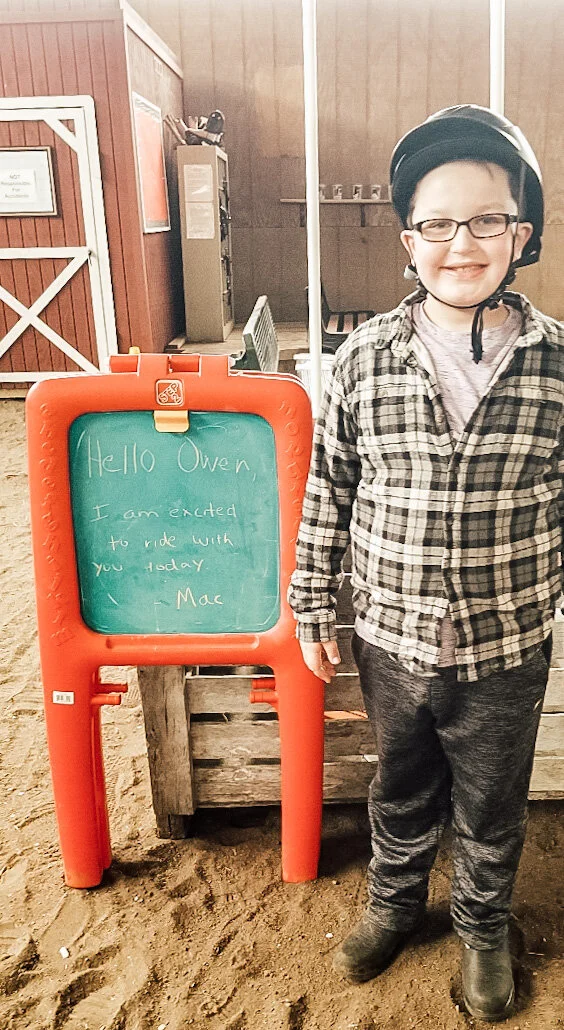 NOT
Responsible
For
Accidents
STEP2
Hello Owen,
I am excited
to ride with
you today.
Mac